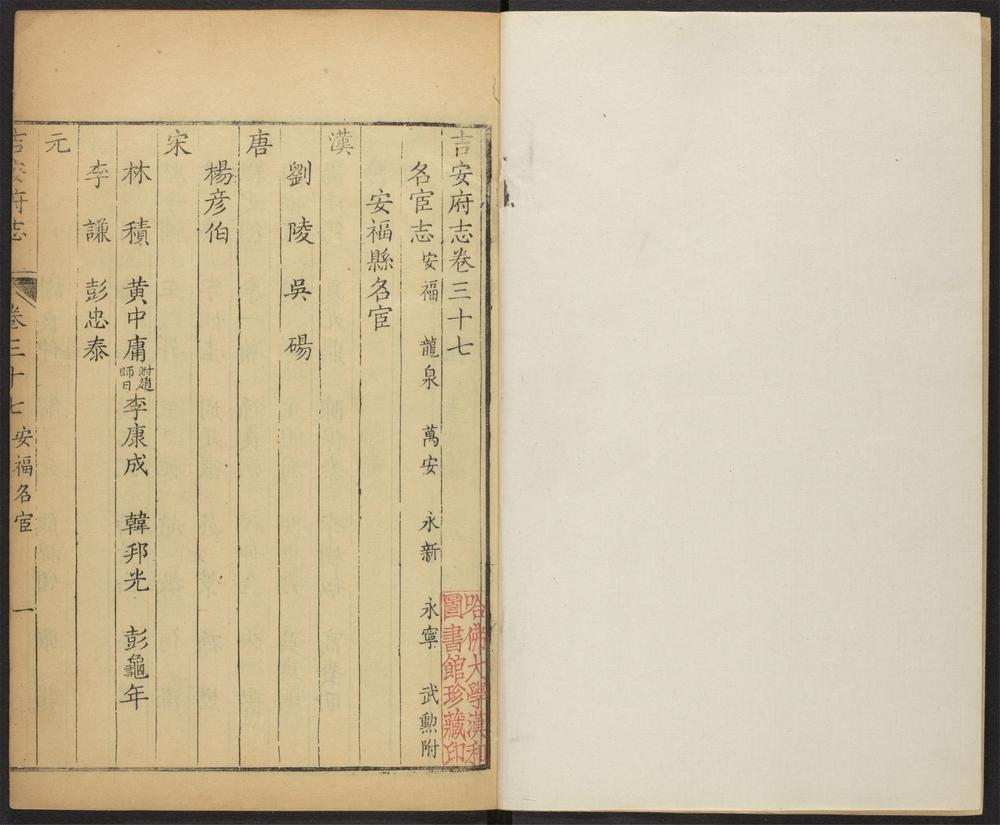 吉安府志卷三十七
名宦志 安福 龍泉 萬安 永新 永寧 武勳附
安福縣名宦
漢
劉陵 吳碭
唐
楊彦伯
宋
林積 黄中庸 附趙師日 李康成 韓邦光 彭龜年
李謙 彭忠泰
元
吉安府志 卷三十七 安福名宦 一
哈佛大學漢和
圖書館珍藏印